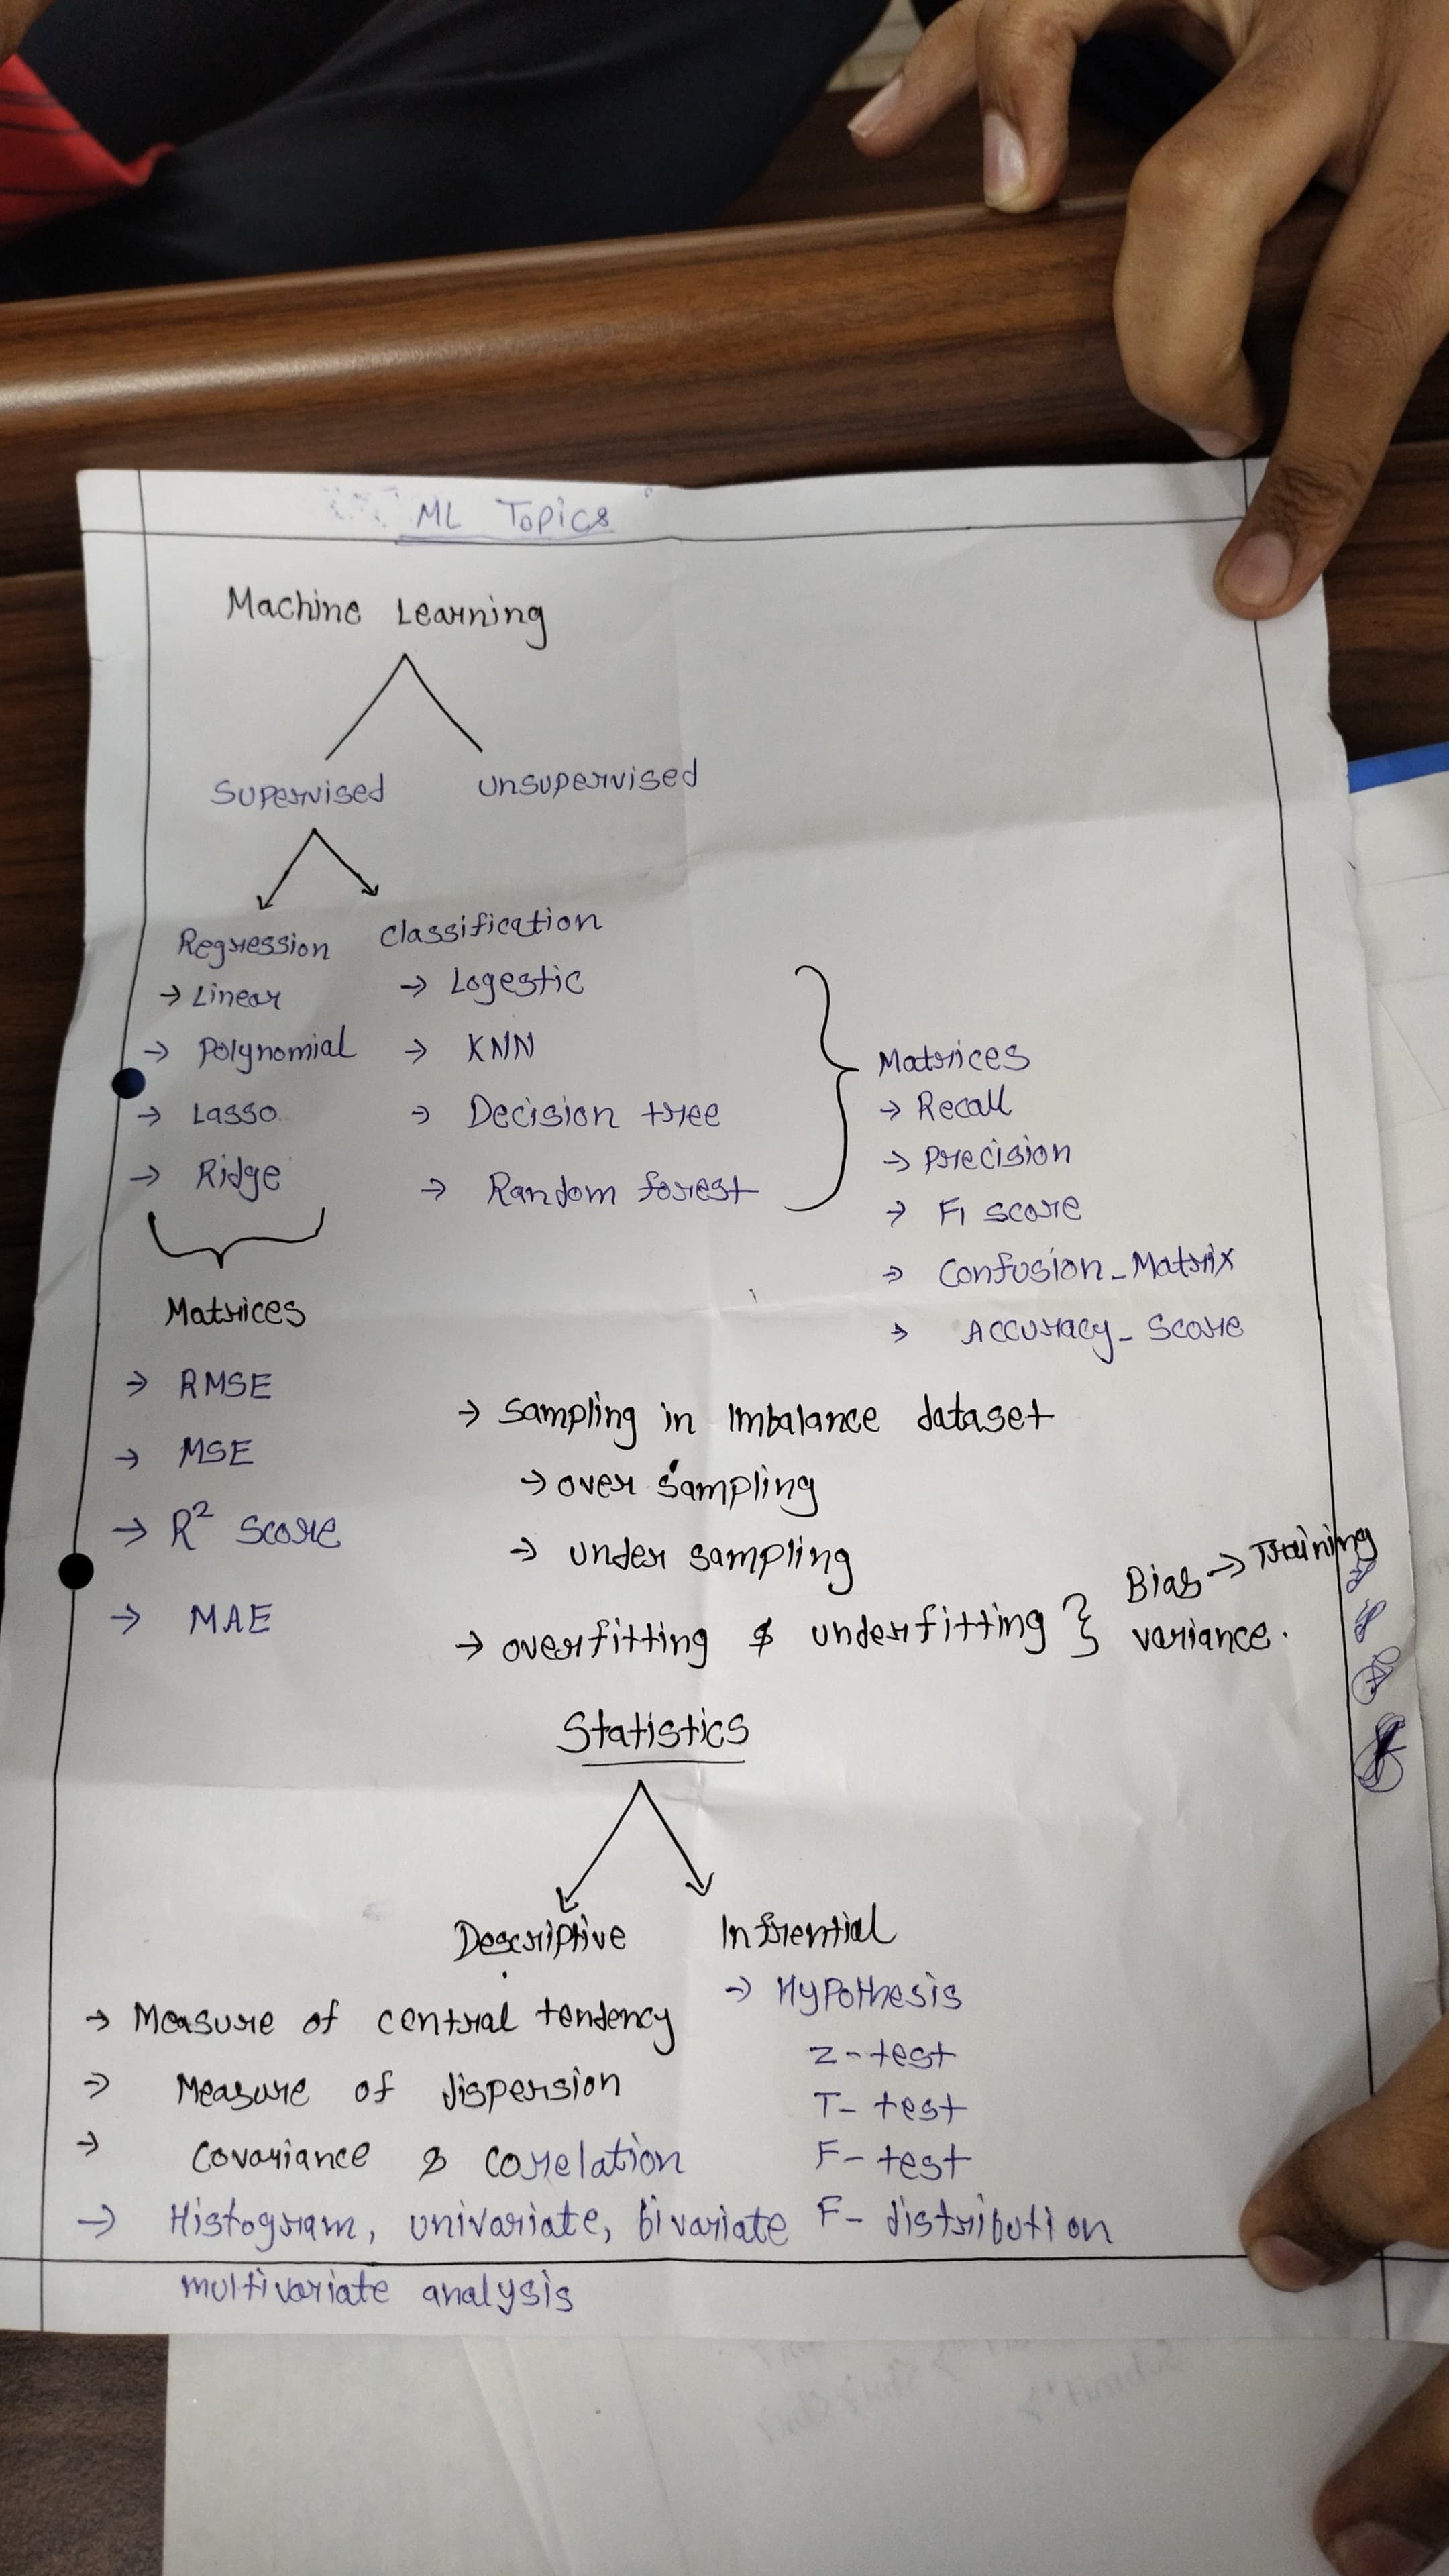 ML Topics
Machine Learning
Supervised
Unsupervised
Regression
→ Linear
→ Polynomial
→ Lasso
→ Ridge
Matrices
→ RMSE
→ MSE
→ R² Score
→ MAE
Classification
→ Logestic
→ KNN
→ Decision tree
→ Random forest
Matrices
→ Recall
→ Precision
→ F1 score
→ Confusion_Matrix
→ Accuracy_Score
→ Sampling in Imbalance dataset
→ over sampling
→ under sampling
→ overfitting & underfitting } Bias → Training
variance.
Statistics
Descriptive
→ Measure of central tendency
→ Measure of dispersion
→ Covariance & Corelation
→ Histogram, univariate, bivariate
multivariate analysis
Infrential
→ Hypothesis
Z-test
T-test
F-test
F-distribution